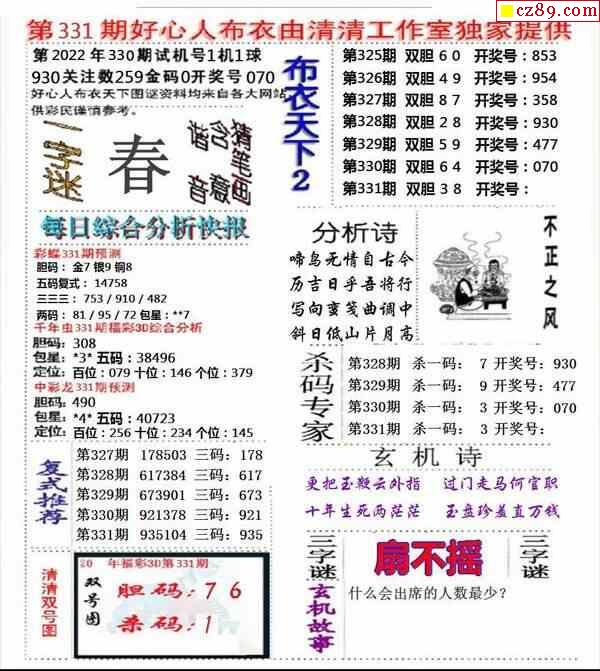 cz89.com
第331期好心人布衣由清清工作室独家提供
第2022年330期试机号1机1球
930关注数259金码0开奖号070
好心人布衣天下图谜资料均来自各大网站
供彩民谨慎参考。
一字迷
春
猜笔画
含意
谐音
布衣天下2
第325期 双胆60 开奖号:853
第326期 双胆49 开奖号:954
第327期 双胆87 开奖号:358
第328期 双胆28 开奖号:930
第329期 双胆59 开奖号:477
第330期 双胆64 开奖号:070
第331期 双胆38 开奖号:
每日综合分析快报
彩蝶331期预测
胆码: 金7 银9 铜8
五码复式: 14758
三三三: 753 / 910 / 482
两码: 81 / 95 / 72 包星: **7
千年虫331期福彩3D综合分析
胆码: 308
包星: *3* 五码: 38496
定位: 百位: 079 十位: 146 个位: 379
中彩龙331期预测
胆码: 490
包星: *4* 五码: 40723
定位: 百位: 256 十位: 234 个位: 145
分析诗
啼鸟无情自古今
历吉日乎吾将行
写向蛮笺曲调中
斜日低山片月高
不正之风
杀码专家
第328期 杀一码: 7 开奖号:930
第329期 杀一码: 9 开奖号:477
第330期 杀一码: 3 开奖号:070
第331期 杀一码: 3 开奖号:
玄机诗
更把玉鞭云外指 过门走马何官职
十年生死两茫茫 玉盘珍羞直万钱
复式推荐
第327期 178503 三码: 178
第328期 617384 三码: 617
第329期 673901 三码: 673
第330期 921378 三码: 921
第331期 935104 三码: 935
清清双号图
20 年福彩3D第331期
双号图
胆码: 7 6
杀码: 1
三字谜
扇不摇
三字谜
玄机故事
什么会出席的人数最少?